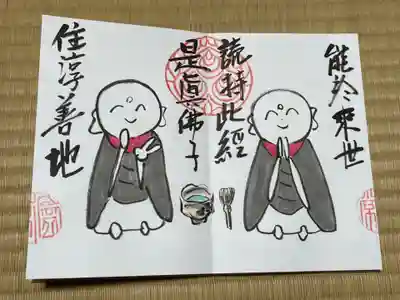 能於来世
読持此経
是真佛子
住淳善地